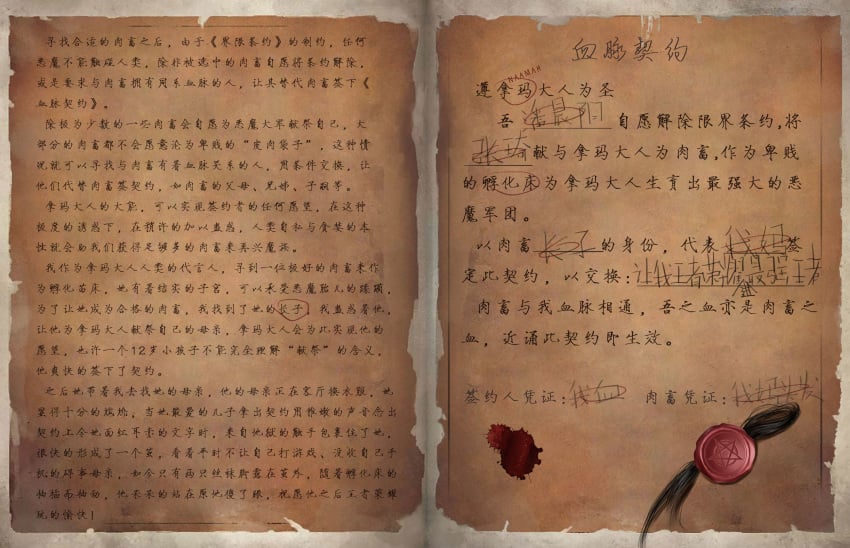 寻找合适的肉畜之后，由于《界限条约》的制约，任何
恶魔不能触碰人类，除非被选中的肉畜自愿将条约解除，
或是要求与肉畜拥有同系血脉的人，让其替代肉畜签下《
血脉契约》。
除极为少数的一些肉畜会自愿为恶魔大军献祭自己，大
部分的肉畜都不会愿意沦为卑贱的“皮肉袋子”，这种情
况就可以寻找与肉畜有着血脉关系的人，用条件交换，让
他们代替肉畜签契约，如肉畜的父母、兄姊、子嗣等。
拿玛大人的大能，可以实现签约者的任何愿望，在这种
极度的诱惑下，在稍许的加以蛊惑，人类自私与贪婪的本
性就会助我们获得足够多的肉畜来再兴魔派。
我作为拿玛大人人类的代言人，寻到一位极好的肉畜来作
为孵化苗床，她有着结实的子宫，可以承受恶魔胎儿的蹂躏，
为了让她成为合格的肉畜，我找到了她的长子，我蛊惑着他，
让他为拿玛大人献祭自己的母亲，拿玛大人会为此实现他的
愿望，也许一个12岁小孩子不能完全理解“献祭”的含义，
他爽快的签下了契约。
之后他带着我去找她的母亲，他的母亲正在客厅换衣服，她
显得十分的尴尬，当她最爱的儿子拿出契约用稚嫩的声音念出
契约上令她面红耳赤的文字时，来自地狱的触手包裹住了她，
很快的形成了一个茧，看着平时不让自己打游戏、没收自己手
机的碍事母亲，如今只有两只丝袜脚露在茧外，随着孵化床的
抽搐而抽动，他呆呆的站在原地傻了眼，祝愿他之后王者荣耀
玩的愉快！
血脉契约
NAAMAH
遵拿玛大人为圣
吾 自愿解除限界条约,将
献与拿玛大人为肉畜,作为卑贱
的孵化床为拿玛大人生育出最强大的恶
魔军团。
以肉畜 长子 的身份，代表 我妈 签
定此契约，以交换：让我王者荣耀最强王者
肉畜与我血脉相通，吾之血亦是肉畜之
血，近诵此契约即生效。
签约人凭证：我血 肉畜凭证：我妈头发